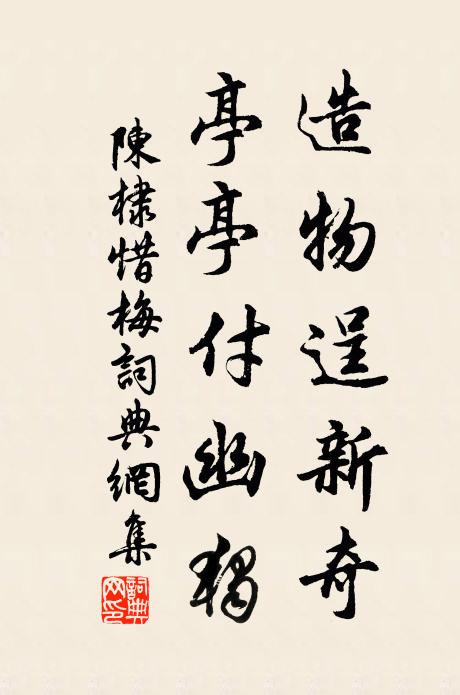 造物逞新奇
亭亭付幽獨
陳棣惜梅詞典網集
詞典網印